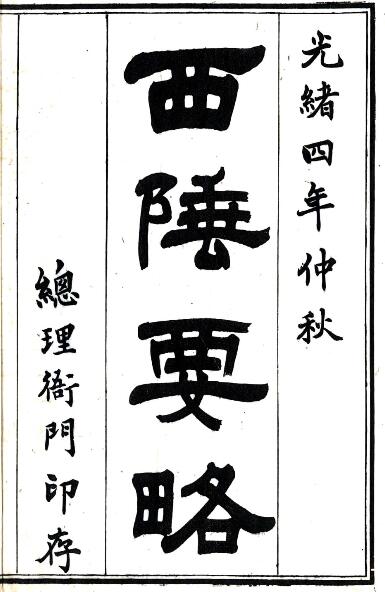 光緒四年仲秋
西陲要略
總理衙門印存